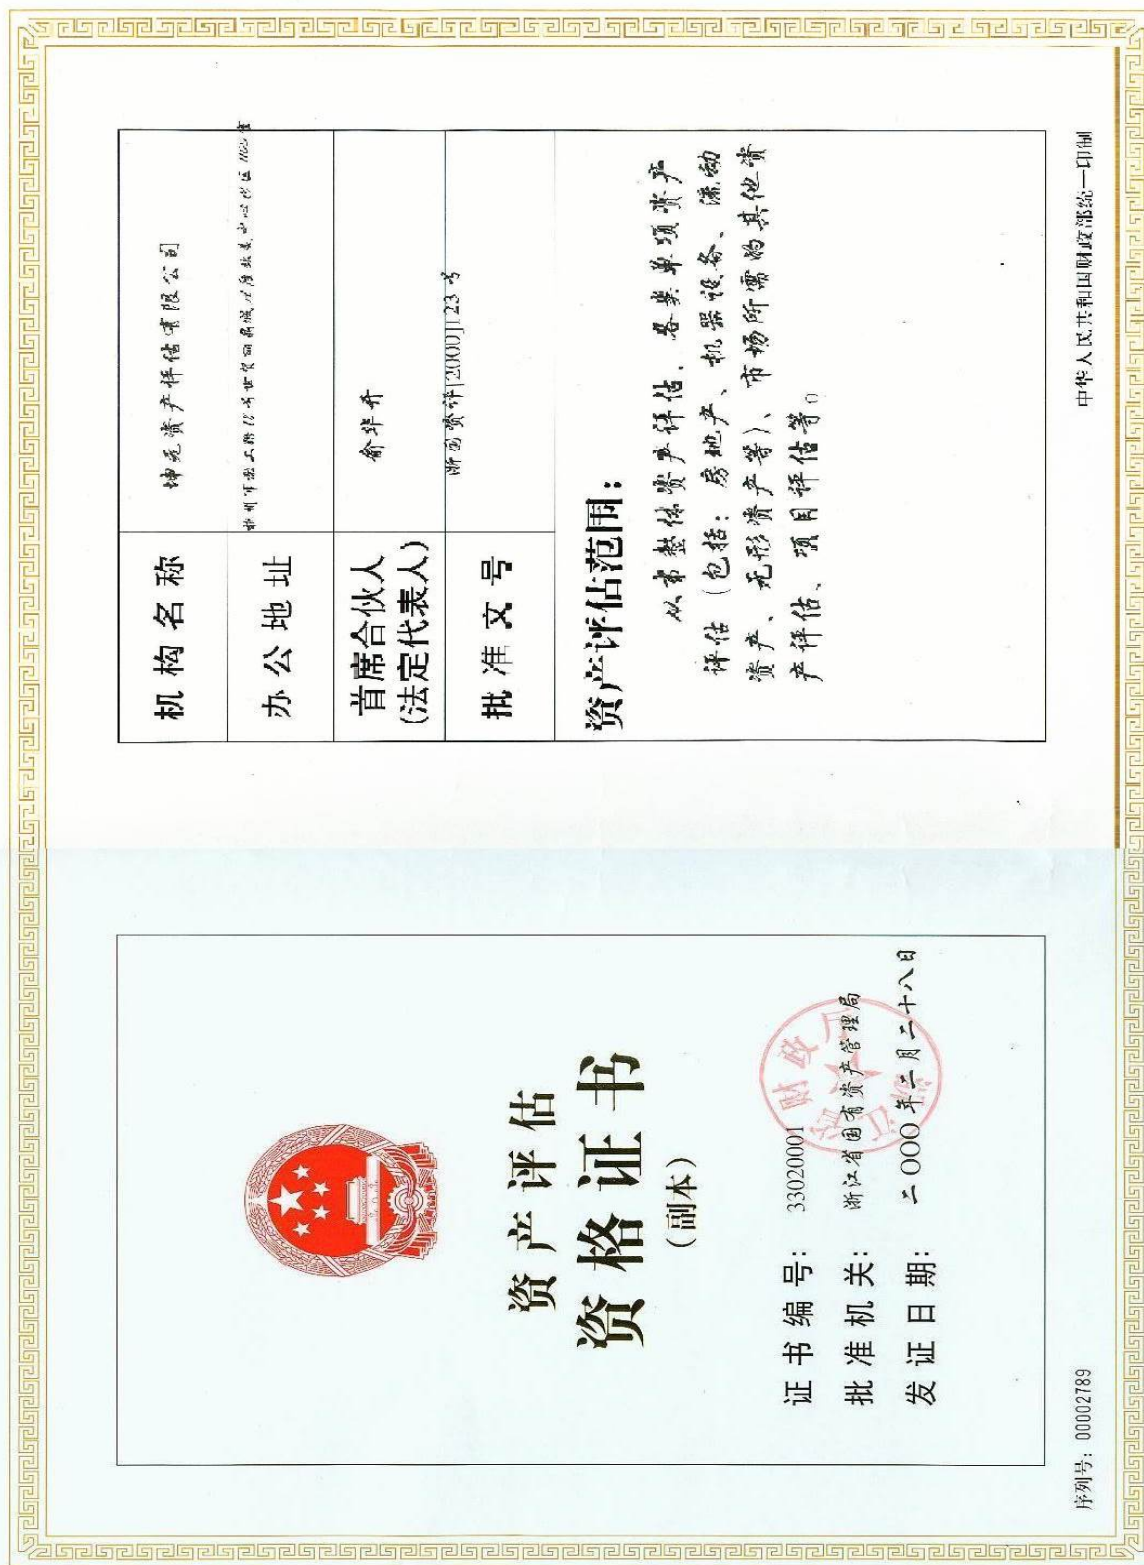 资产评估
资格证书
(副本)
证书编号: 33020001
批准机关: 浙江省国有资产管理局
发证日期: 二000年二月二十八日
序列号: 00002789
机构名称 坤元资产评估有限公司
办公地址
首席合伙人 俞华开
(法定代表人)
批准文号 浙国资评[2000]123号
资产评估范围:
从事整体资产评估、各类单项资产
评估(包括:房地产、机器设备、流动
资产、无形资产等)、市场所需的其他资
产评估、项目评估等。
中华人民共和国财政部统一印制